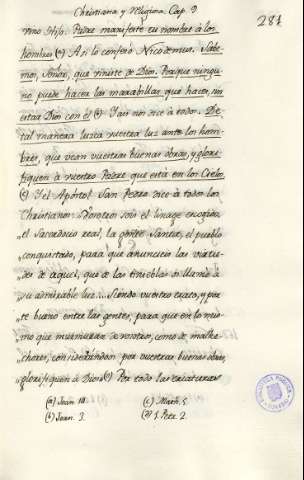 Christiana y Religiosa. Cap. 9
281
vino Hijo. Padre manifesté tu nombre á los
hombres (a) Asi lo confesó Nicodemus. Sabe-
mos, Señor, que viniste de Dios. Porque ningu-
no puede hacer las marabillas, que haces, sin
estar Dios con él (b) Y asi nos dice á todos. De
tal manera luzca vuestra luz ante los hom-
bres, que vean vuestras buenas obras, y glori-
fiquen á vuestro Padre que está en los Cielos
(c) Y el Apóstol San Pedro dice á todos los
Christianos: Vosotros sois el linage escogido,
„ el Sacerdocio real, la gente Santa, el pueblo
conquistado, para que anuncieis las virtu-
„ des de aquel, que de las tinieblas os llamó á
„ su admirable luz... Siendo vuestro trato, y por-
„ te bueno entre las gentes, para que en lo mis-
„ mo que murmuran de vosotros, como de malhe-
„ chores, considerandoos por vuestras buenas obras,
„ glorifiquen á Dios (d) Por todas las escrituras
(a) Joan 17.
(c) Math. 5
(b) Joan. 3.
(d) 1. Petr. 2.
BIBLIOTECA PUBLICA
TOLEDO